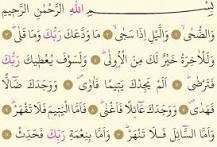 بِسْمِ اللّٰهِ الرَّحْمٰنِ الرَّحِيمِ
وَالضُّحٰىۙ ﴿١﴾ وَالَّيْلِ اِذَا سَجٰىۙ ﴿٢﴾ مَا وَدَّعَكَ رَبُّكَ وَمَا قَلٰىۜ ﴿٣﴾
وَلَلْاٰخِرَةُ خَيْرٌ لَكَ مِنَ الْاُو۫لٰىۜ ﴿٤﴾ وَلَسَوْفَ يُعْطِيكَ رَبُّكَ
فَتَرْضٰىۜ ﴿٥﴾ اَلَمْ يَجِدْكَ يَتِيمًا فَاٰوٰىۖ ﴿٦﴾ وَوَجَدَكَ ضَٓالًّا
فَهَدٰىۖ ﴿٧﴾ وَوَجَدَكَ عَٓائِلًا فَاَغْنٰىۜ ﴿٨﴾ فَاَمَّا الْيَتِيمَ فَلَا تَقْهَرْۜ ﴿٩﴾
وَاَمَّا السَّٓائِلَ فَلَا تَنْهَرْۜ ﴿١٠﴾ وَاَمَّا بِنِعْمَةِ رَبِّكَ فَحَدِّثْ ﴿١١﴾